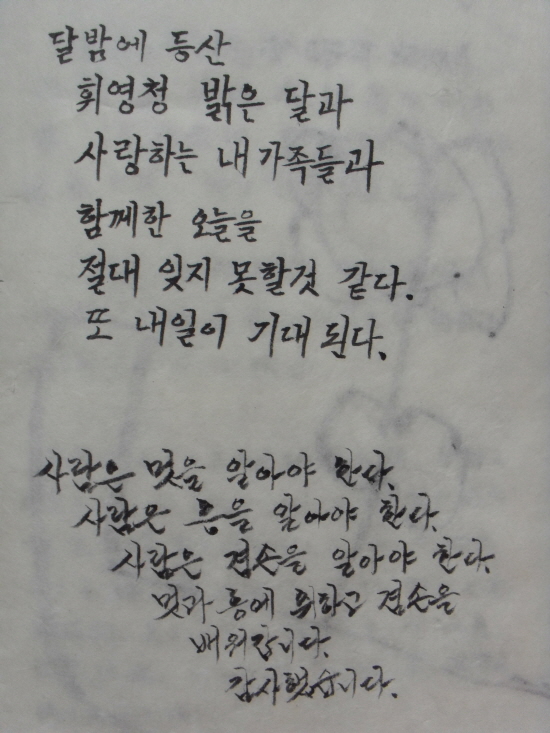 달밤에 등산
휘영청 밝은 달과
사랑하는 내 가족들과
함께한 오늘을
절대 잊지 못할것 같다.
또 내일이 기대 된다.
사람은 멋을 알아야 한다.
사람은 흥을 알아야 한다.
사람은 겸손을 알아야 한다.
멋과 흥에 취하고 겸손을
배워갑니다.
감사했습니다.